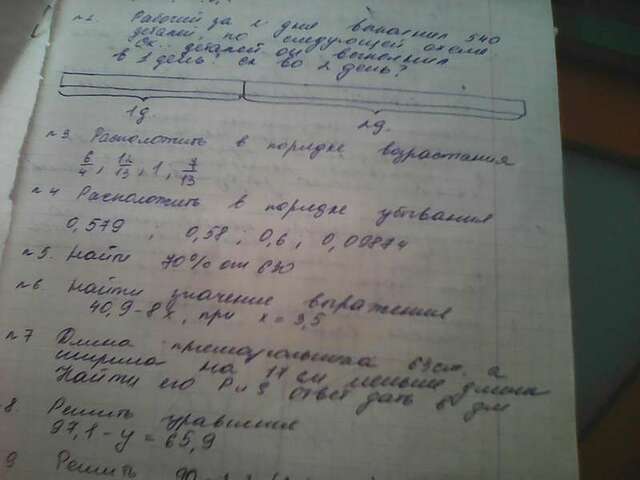 №2. Рабочий за 2 дня выполнил 540
деталей, по следующей схеме
Ск. деталей он выполнил
в 1 день, ск во 2 день?
1д. 2д.
№3 Расположить в порядке возрастания
6/4; 12/13; 1; 7/13
№4 Расположить в порядке убывания
0,579; 0,58; 0,6; 0,09874
№5. Найти 70% от 630
№6 Найти значение выражения
40,9-8x, при x=3,5
№7 Длина прямоугольника 63см, а
ширина на 18 см меньше длины
Найти его P и S ответ дать в дм
8. Решить уравнение
97,1-y=65,9
9 Решить